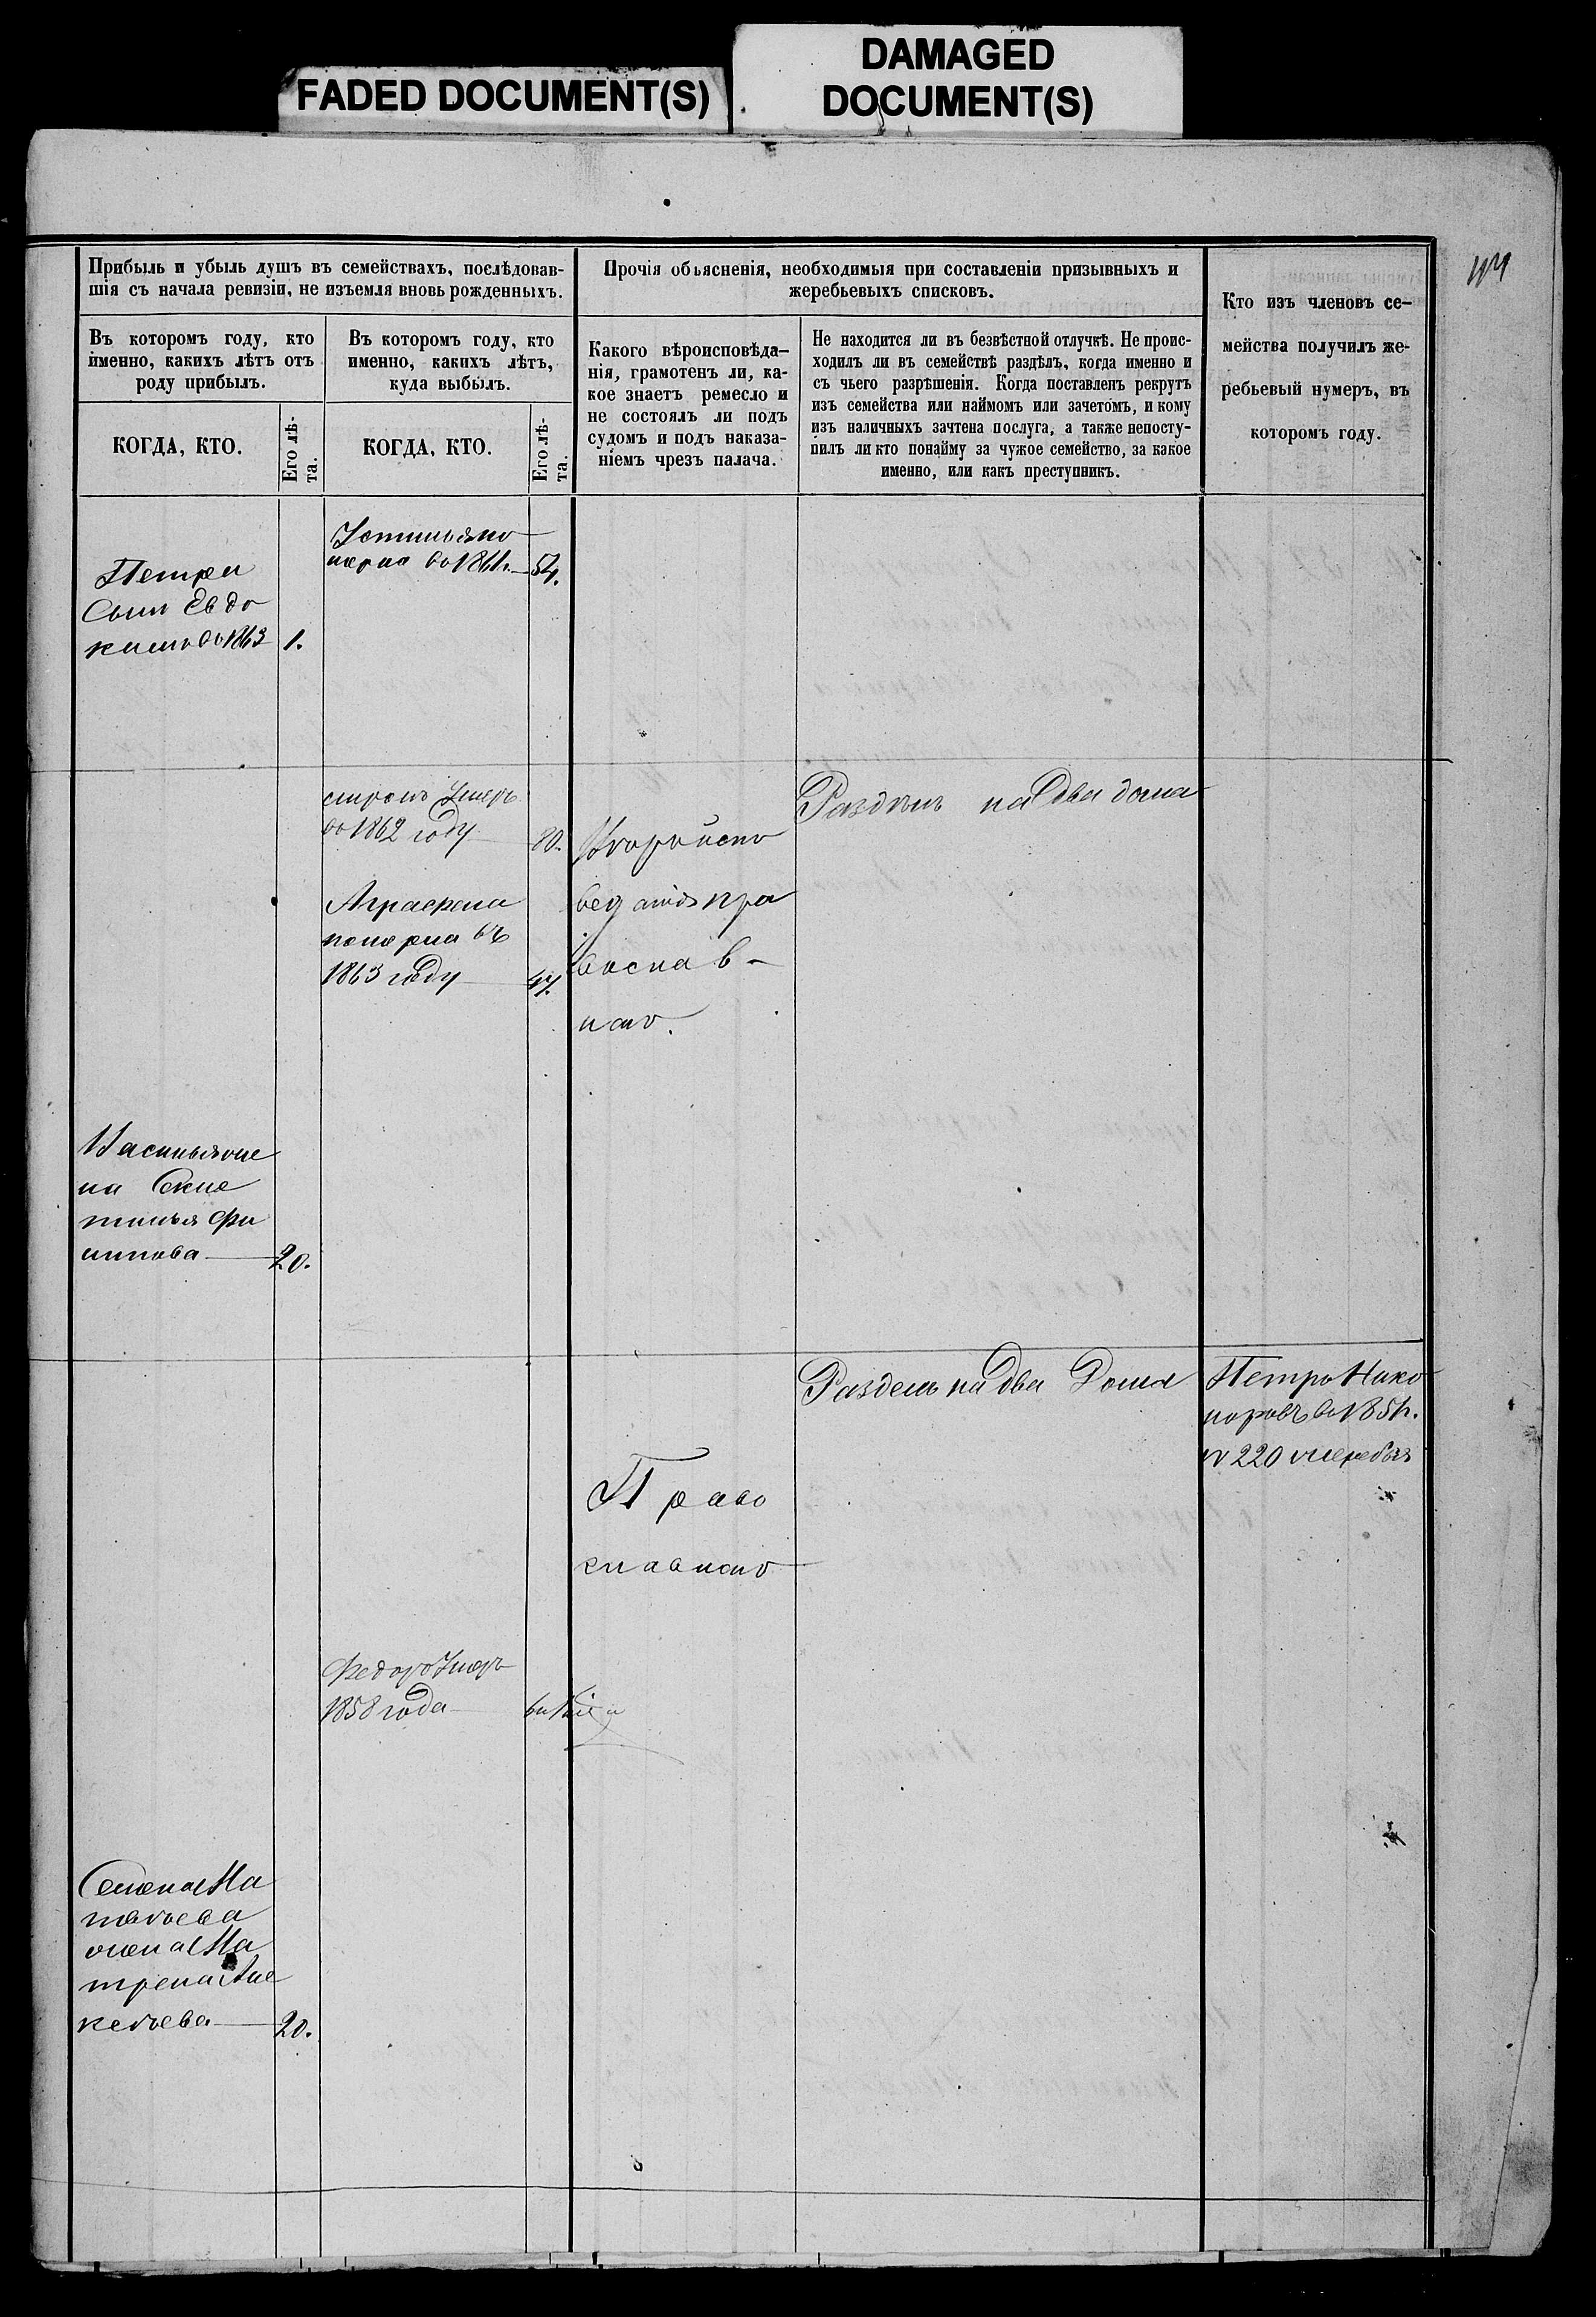 FADED DOCUMENT(S)
DAMAGED
DOCUMENT(S)
Прибыль и убыль душъ въ семействахъ, послѣдовав-
шія съ начала ревизіи, не изъемля вновь рожденныхъ.
Прочія объясненія, необходимыя при составленіи призывныхъ и
жеребьевыхъ списковъ.
Кто изъ членовъ се-
мейства получилъ же-
ребьевый нумеръ, въ
которомъ году.
Въ которомъ году, кто
именно, какихъ лѣтъ отъ
роду прибылъ.
Въ которомъ году, кто
именно, какихъ лѣтъ,
куда выбылъ.
Какого вѣроисповѣда-
нія, грамотенъ ли, ка-
кое знаетъ ремесло и
не состоялъ ли подъ
судомъ и подъ наказа-
ніемъ чрезъ палача.
Не находится ли въ безвѣстной отлучкѣ. Не проис-
ходилъ ли въ семействѣ раздѣлъ, когда именно и
съ чьего разрѣшенія. Когда поставленъ рекрутъ
изъ семейства или наймомъ или зачетомъ, и кому
изъ наличныхъ зачтена послуга, а также непосту-
пилъ ли кто понайму за чужое семейство, за какое
именно, или какъ преступникъ.
КОГДА, КТО.
Его лѣ-
та.
КОГДА, КТО.
Его лѣ-
та.
Устинья по
мерла въ 1861 г. 54.
Петра
Сынъ Евдо
кимъ въ 1863 1.
Умеръ
въ 1862 году 80.
Аграфена
померла въ
1863 году 47.
пра
вослав-
наго.
Раздѣлъ на два дома
Васильяже
на
тинья Фи
липова 20.
Разделъ на два Дома
Петръ Нико
норовъ въ
№ 220 жеребья
Право
славнаго
Федоръ Умеръ
1858 года
Семена Ма
твѣева
жена Ма
трена Але
ксѣева 20.